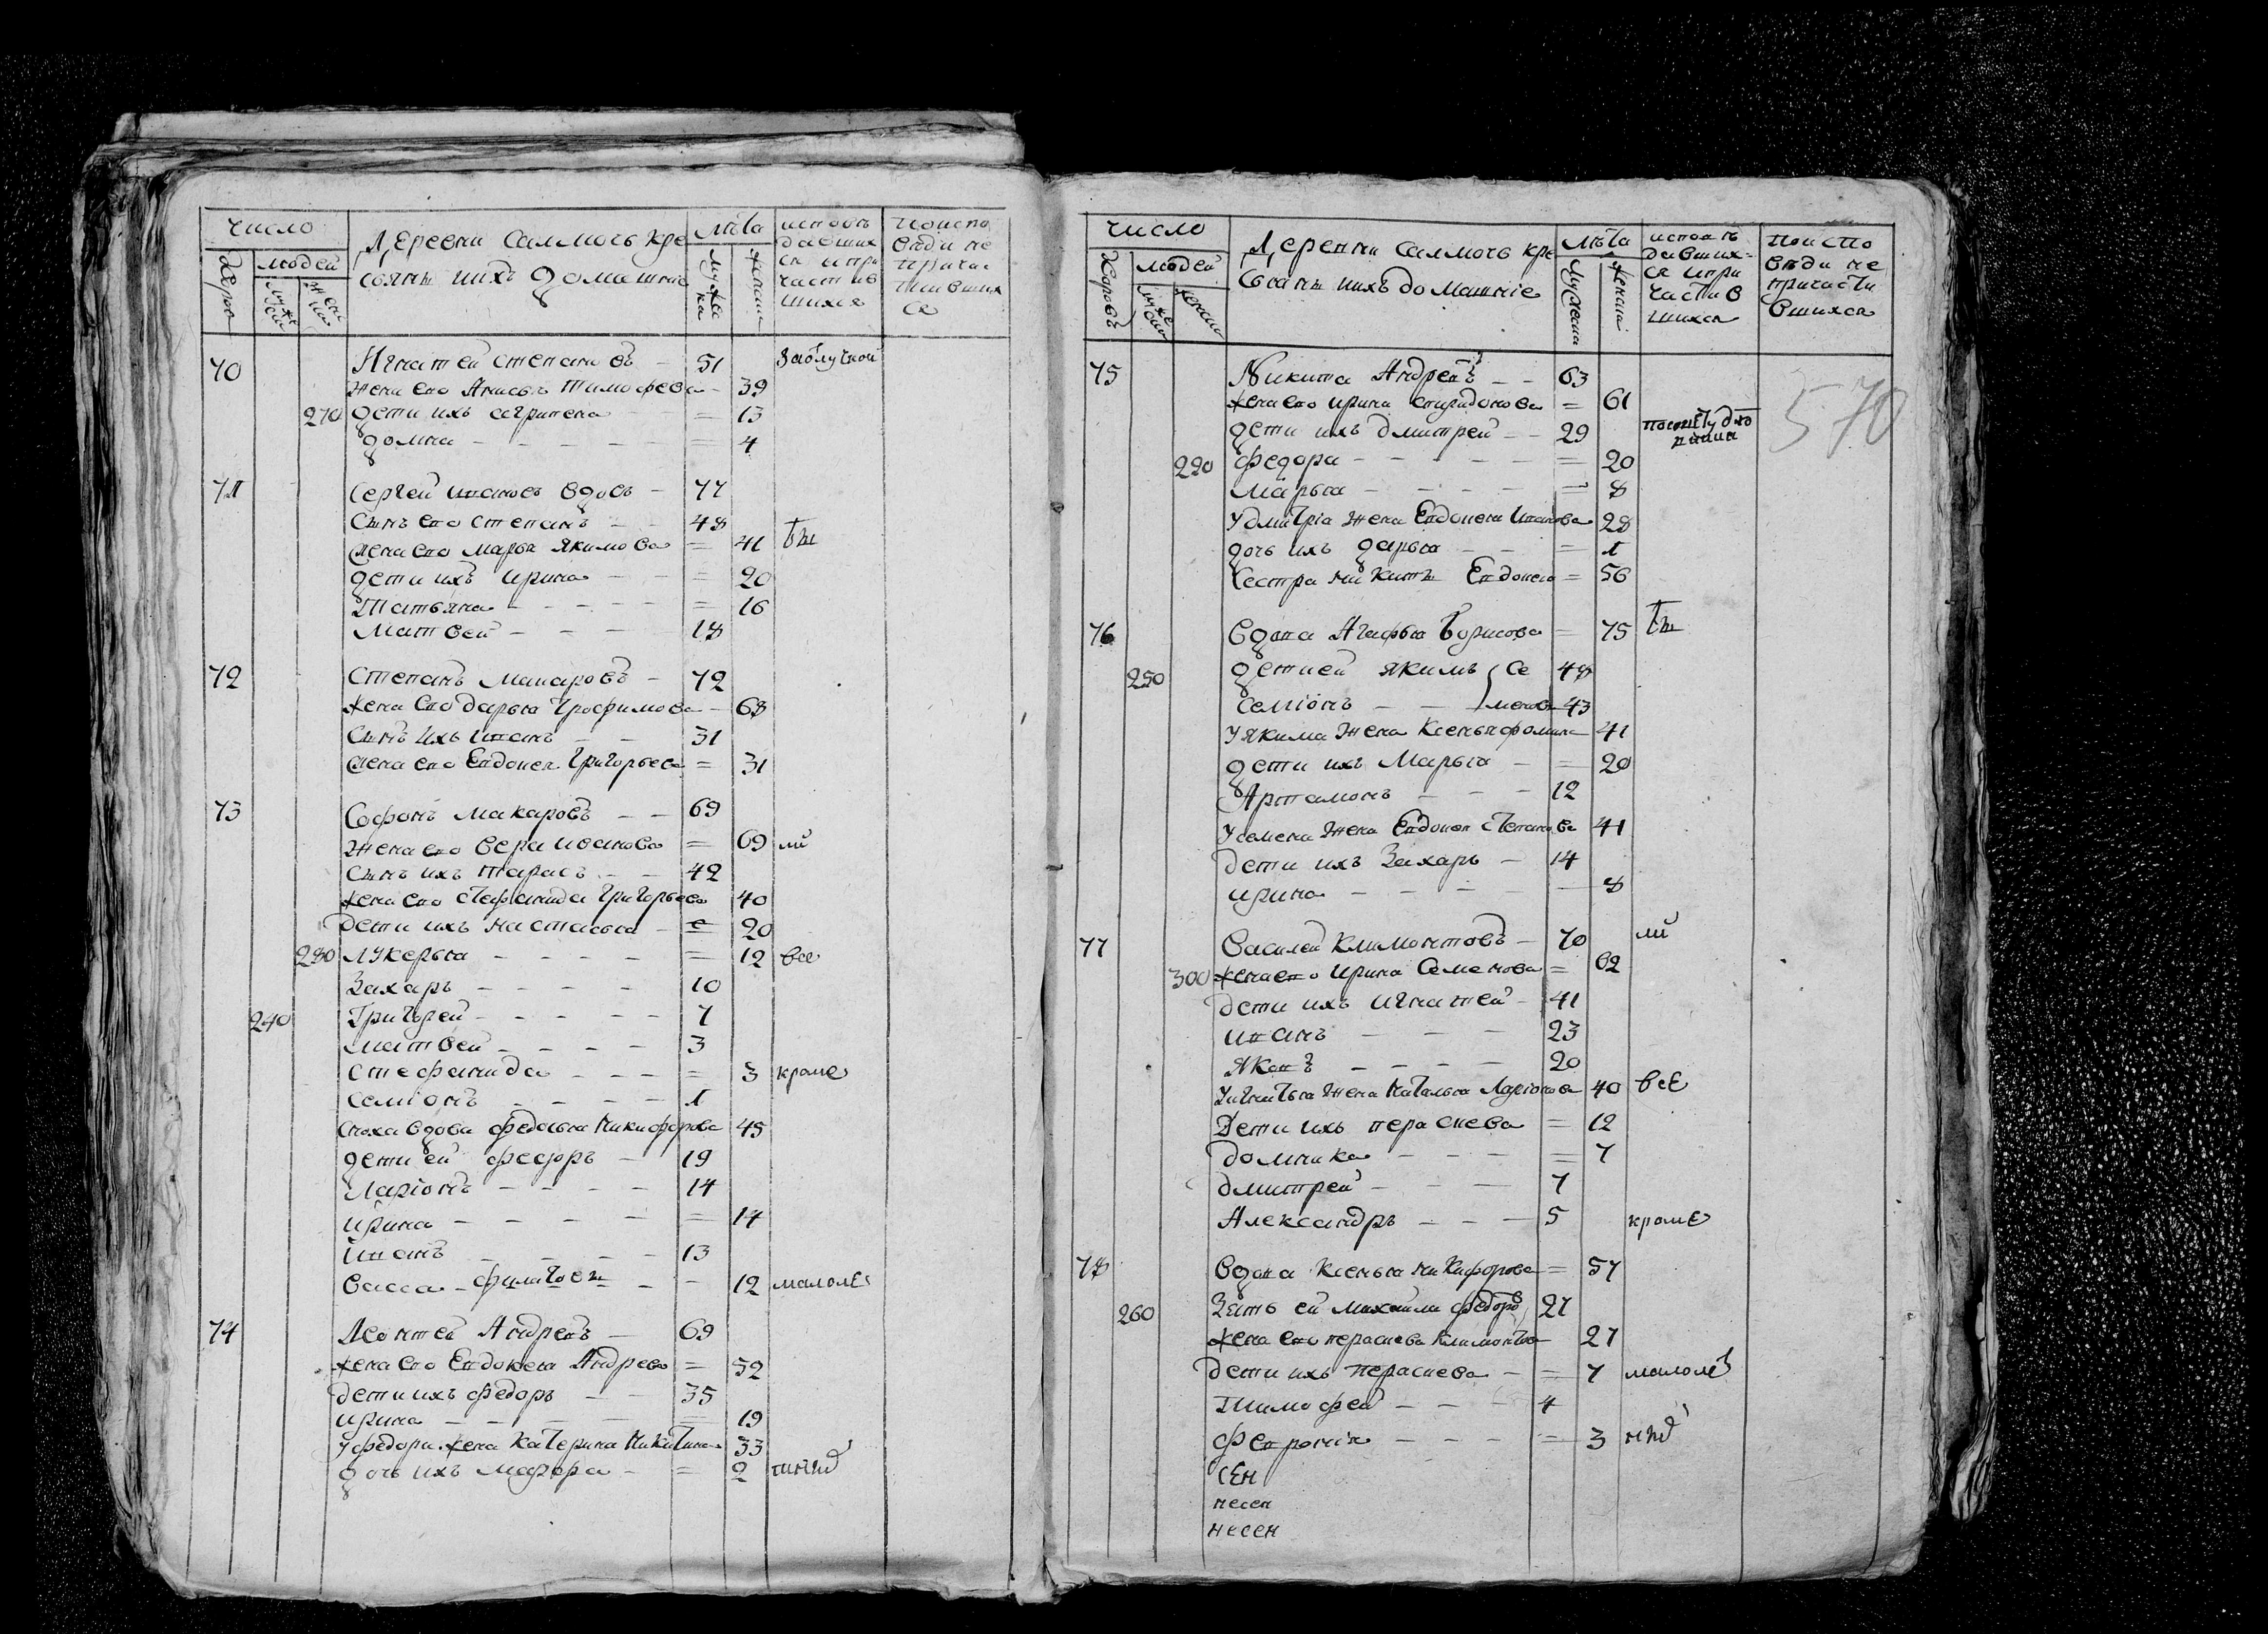 число
Деревни Саимочь кре
стьянѣ ихъ домашние
лѣта
испове
давших
ся и при
частив
шихся
поиспо
веди не
причас
тивших
ся
людей
70 Игнатей Степановъ - 51
жена его Анисья Тимофеева - 39
270 дети ихъ агрипена = 13
домна - - - - = 4
71 Сергей Ивановъ вдовъ - 77
Сынъ его Степанъ - - 48
жена его Марья Якимова = 41
дети ихъ ирина - - = 20
Татьяна - - - - = 16
Матвей - - - 18
72 Степанъ Макаровъ - 72
жена его дарья трофимова - 68
Сынъ ихъ Иванъ - - 31
жена его Евдокея Григорьева = 31
73 Софонъ Макаровъ - - 69
жена его вера Иванова = 69 ли
Сынъ ихъ Тарасъ - - 42
жена его стефанида Григорьева 40
дети ихъ настасья - = 20
280 лукерья - - - - = 12 все
Захаръ - - - - 10
240 Григорей - - - - 7
матвей - - - - 3
стефанида - - - = 3 кроме
Семионъ - - - - 1
сноха вдова федосья Никифорова 45
дети ей федоръ - 19
Ларіонъ - - - - 14
ирина - - - - = 14
Иванъ - - - - 13
васса - филипова - - 12 малолѣ
74 Леонтей Андреевъ - 69
жена его Евдокея Андреева = 52
дети ихъ федоръ - - 35
ирина - - - - = 19
у федора жена Катерина Никитина 33
дочь ихъ мавра - = 2
число
Деревни Саимочь кре
стьянѣ ихъ домашніе
лѣта
исповѣ
давших-
ся и при
частив
шихся
поиспо
веди не
причасти
вшихся
дворовъ
людей
75 Никита Андреевъ - - 63
жена его ирина спиридонова = 61
дети ихъ дмитрей - - 29
290 федора - - - - = 20
Марья - - - - = 8
у дмитріа жена Евдокея Иванова 28
дочь ихъ дарья - - = 1
сестра никитѣ Евдокея = 56
570
76 вдова Агафья борисова = 75
250 дети ей якимъ Се 48
Семіонъ - - менов 43
у якима жена Ксенья фомина 41
дети ихъ Марья - = 20
Артамонъ - - - 12
у семена жена Евдокея степанова 41
дети ихъ Захаръ - 14
ирина - - - - - 8
77 василей климонтовъ - 70 ли
300 жена его ирина Семенова = 62
дети ихъ игнатей - 41
иванъ - - - 23
яковъ - - - - 20
у игнатья жена наталья Ларіонова 40 все
дети ихъ парасковья = 12
домника - - - = 7
дмитрей - - - 7
Александръ - - - 5 кроме
78 вдова Ксенья Никифорова = 57
260 Зять ей михайла федоров 27
жена его параскева климонтова 27
дети ихъ параскева - = 7 малолѣ
Тимофей - - - 4
феврония - - - = 3
сен
несен
несен